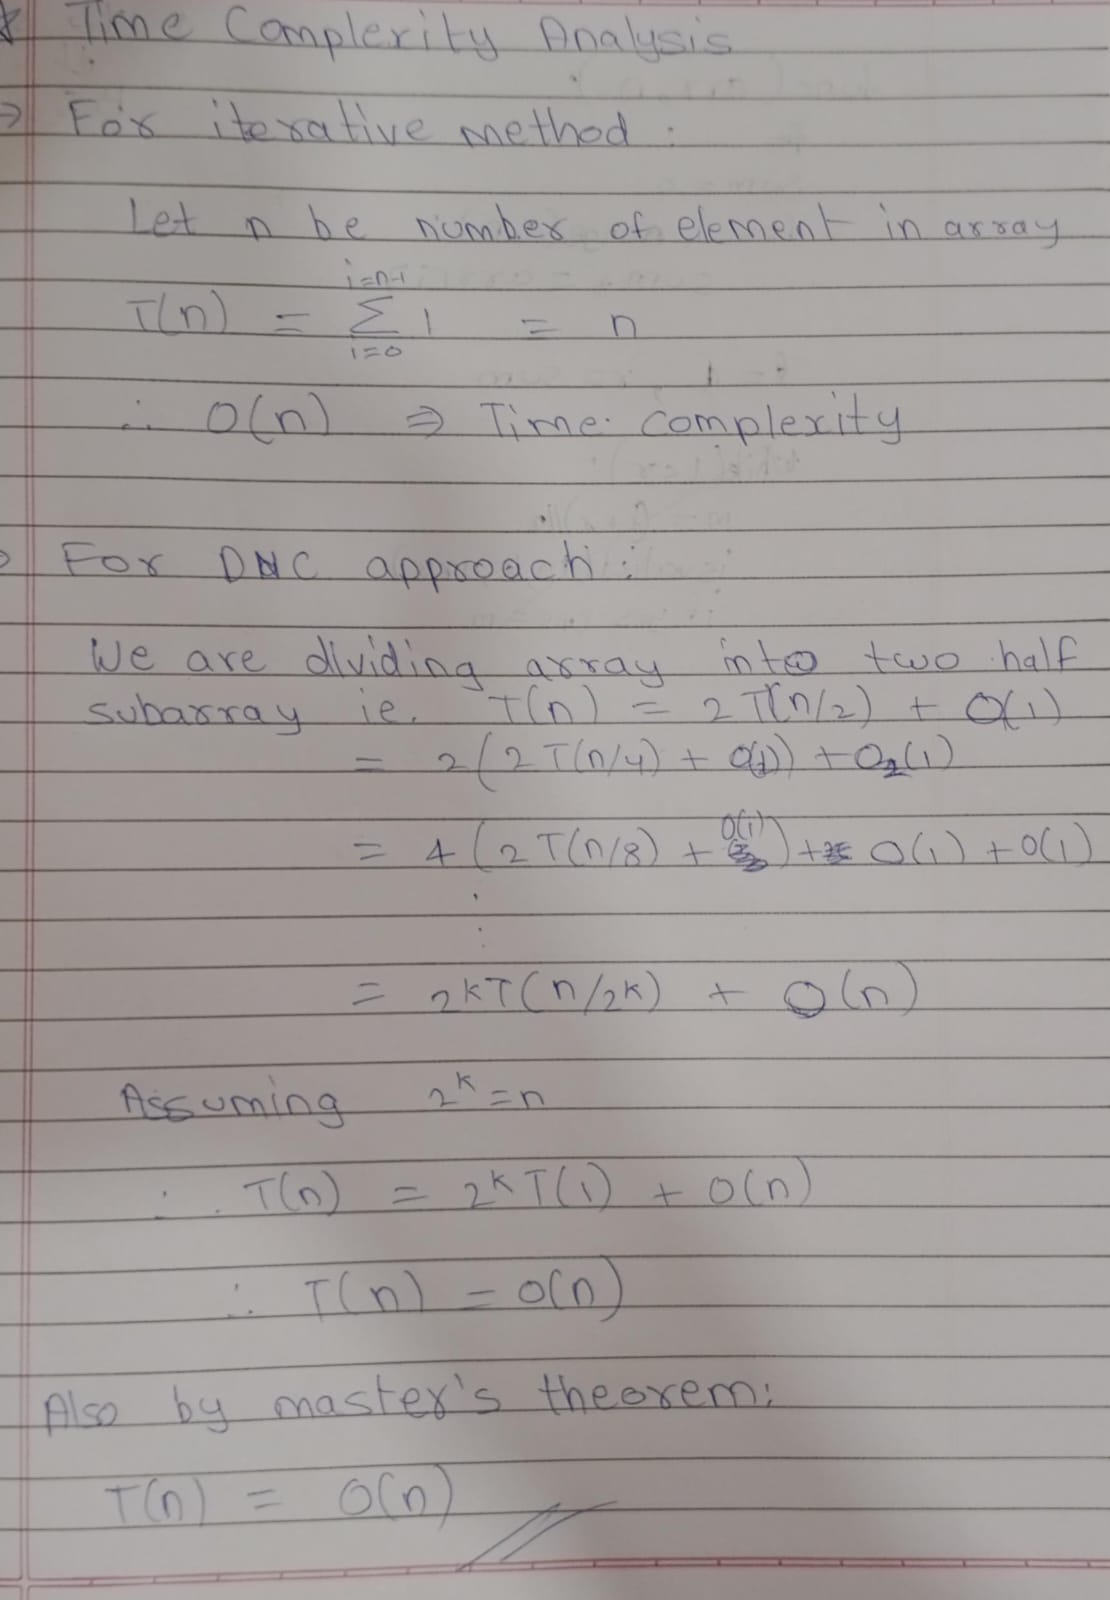 Time Complexity Analysis
⇒ For iterative method :
Let n be number of element in array
i=n-1
T(n) = Σ 1 = n
i=0
∴ O(n) ⇒ Time complexity
For DNC approach :
We are dividing array into two half
subarray ie. T(n) = 2T(n/2) + O(1)
= 2(2T(n/4) + O(1)) + O₂(1)
= 4(2T(n/8) + O(1)) + O(1) + O(1)
⋮
= 2ᵏT(n/2ᵏ) + O(n)
Assuming 2ᵏ=n
∴ T(n) = 2ᵏT(1) + O(n)
∴ T(n) = O(n)
Also by master's theorem;
T(n) = O(n)